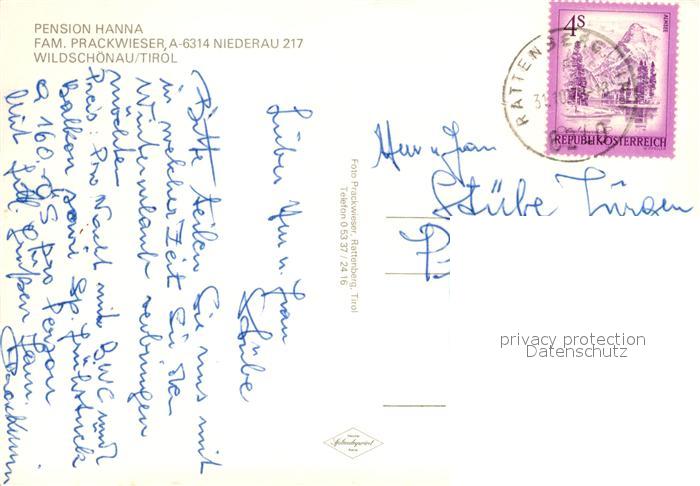 PENSION HANNA
FAM. PRACKWIESER, A-6314 NIEDERAU 217
WILDSCHÖNAU/TIROL
Lieber Herr u. Frau
Stübe
Bitte teilen Sie uns mit
in welcher Zeit Sie den
Winterurlaub verbringen
möchten
Preis: Pro Nacht mit DWC und
Balkon sowie Frühstück
a 160.- ÖS pro Person
Mit Grüßen Fam.
Prackwieser
Foto Prackwieser, Rattenberg, Tirol
Telefon 0 53 37 / 24 16
4S
ALMSEE
REPUBLIK ÖSTERREICH
RATTENBERG
Herr u. Frau
Stübe Jürgen
privacy protection
Datenschutz